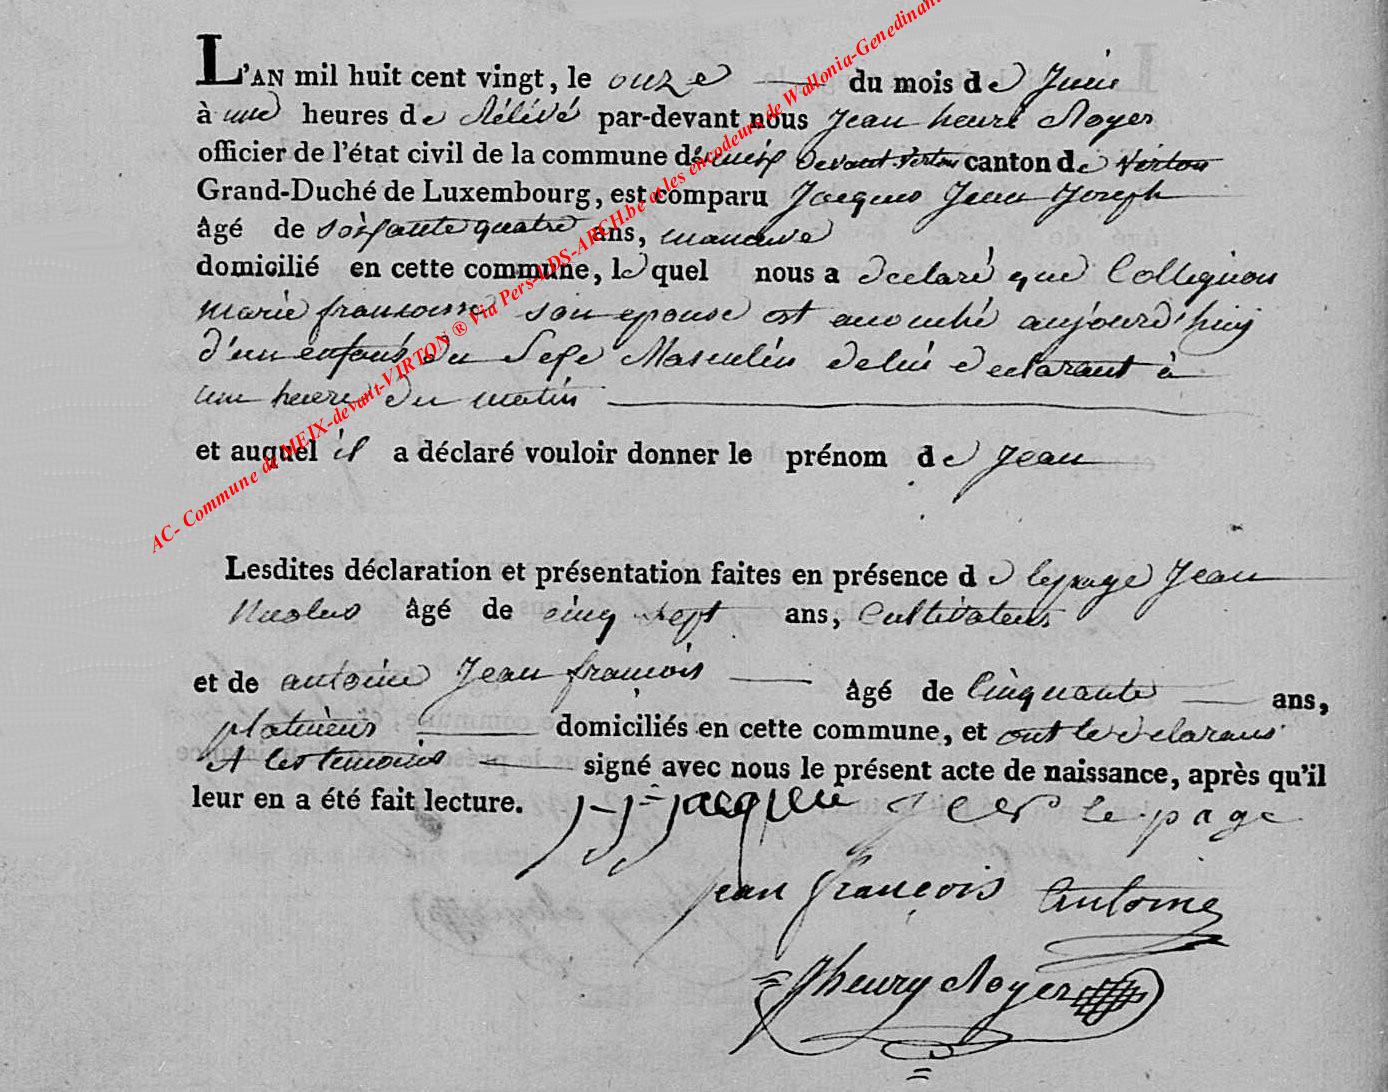 L'AN mil huit cent vingt, le onze du mois de Juin
à une heures de rélévé par-devant nous Jean henri Noyer
officier de l'état civil de la commune de meix devant virton canton de Virton
Grand-Duché de Luxembourg, est comparu Jacques Jean Joseph
âgé de soixante quatre ans, manœuvre
domicilié en cette commune, le quel nous a declaré que Collignon
marie francoise son epouse est accouché aujourd'huy
d'un enfant du Sexe Masculin de lui declarant à
une heure du matin
et auquel il a déclaré vouloir donner le prénom de Jean
Lesdites déclaration et présentation faites en présence de lepage Jean
Nicolas âgé de cinq sept ans, Cultivateur
et de antoine Jean françois âgé de Cinquante ans,
platineur domiciliés en cette commune, et ont le declarant
et les temoins signé avec nous le présent acte de naissance, après qu'il
leur en a été fait lecture. j-j-jacque le page
jean françois antoine
Jhenry Noyer
AC- Commune de MEIX-devant-VIRTON ® Via Pers-LDS-ARCH.be et les encodeurs de Wallonia-Genedinant